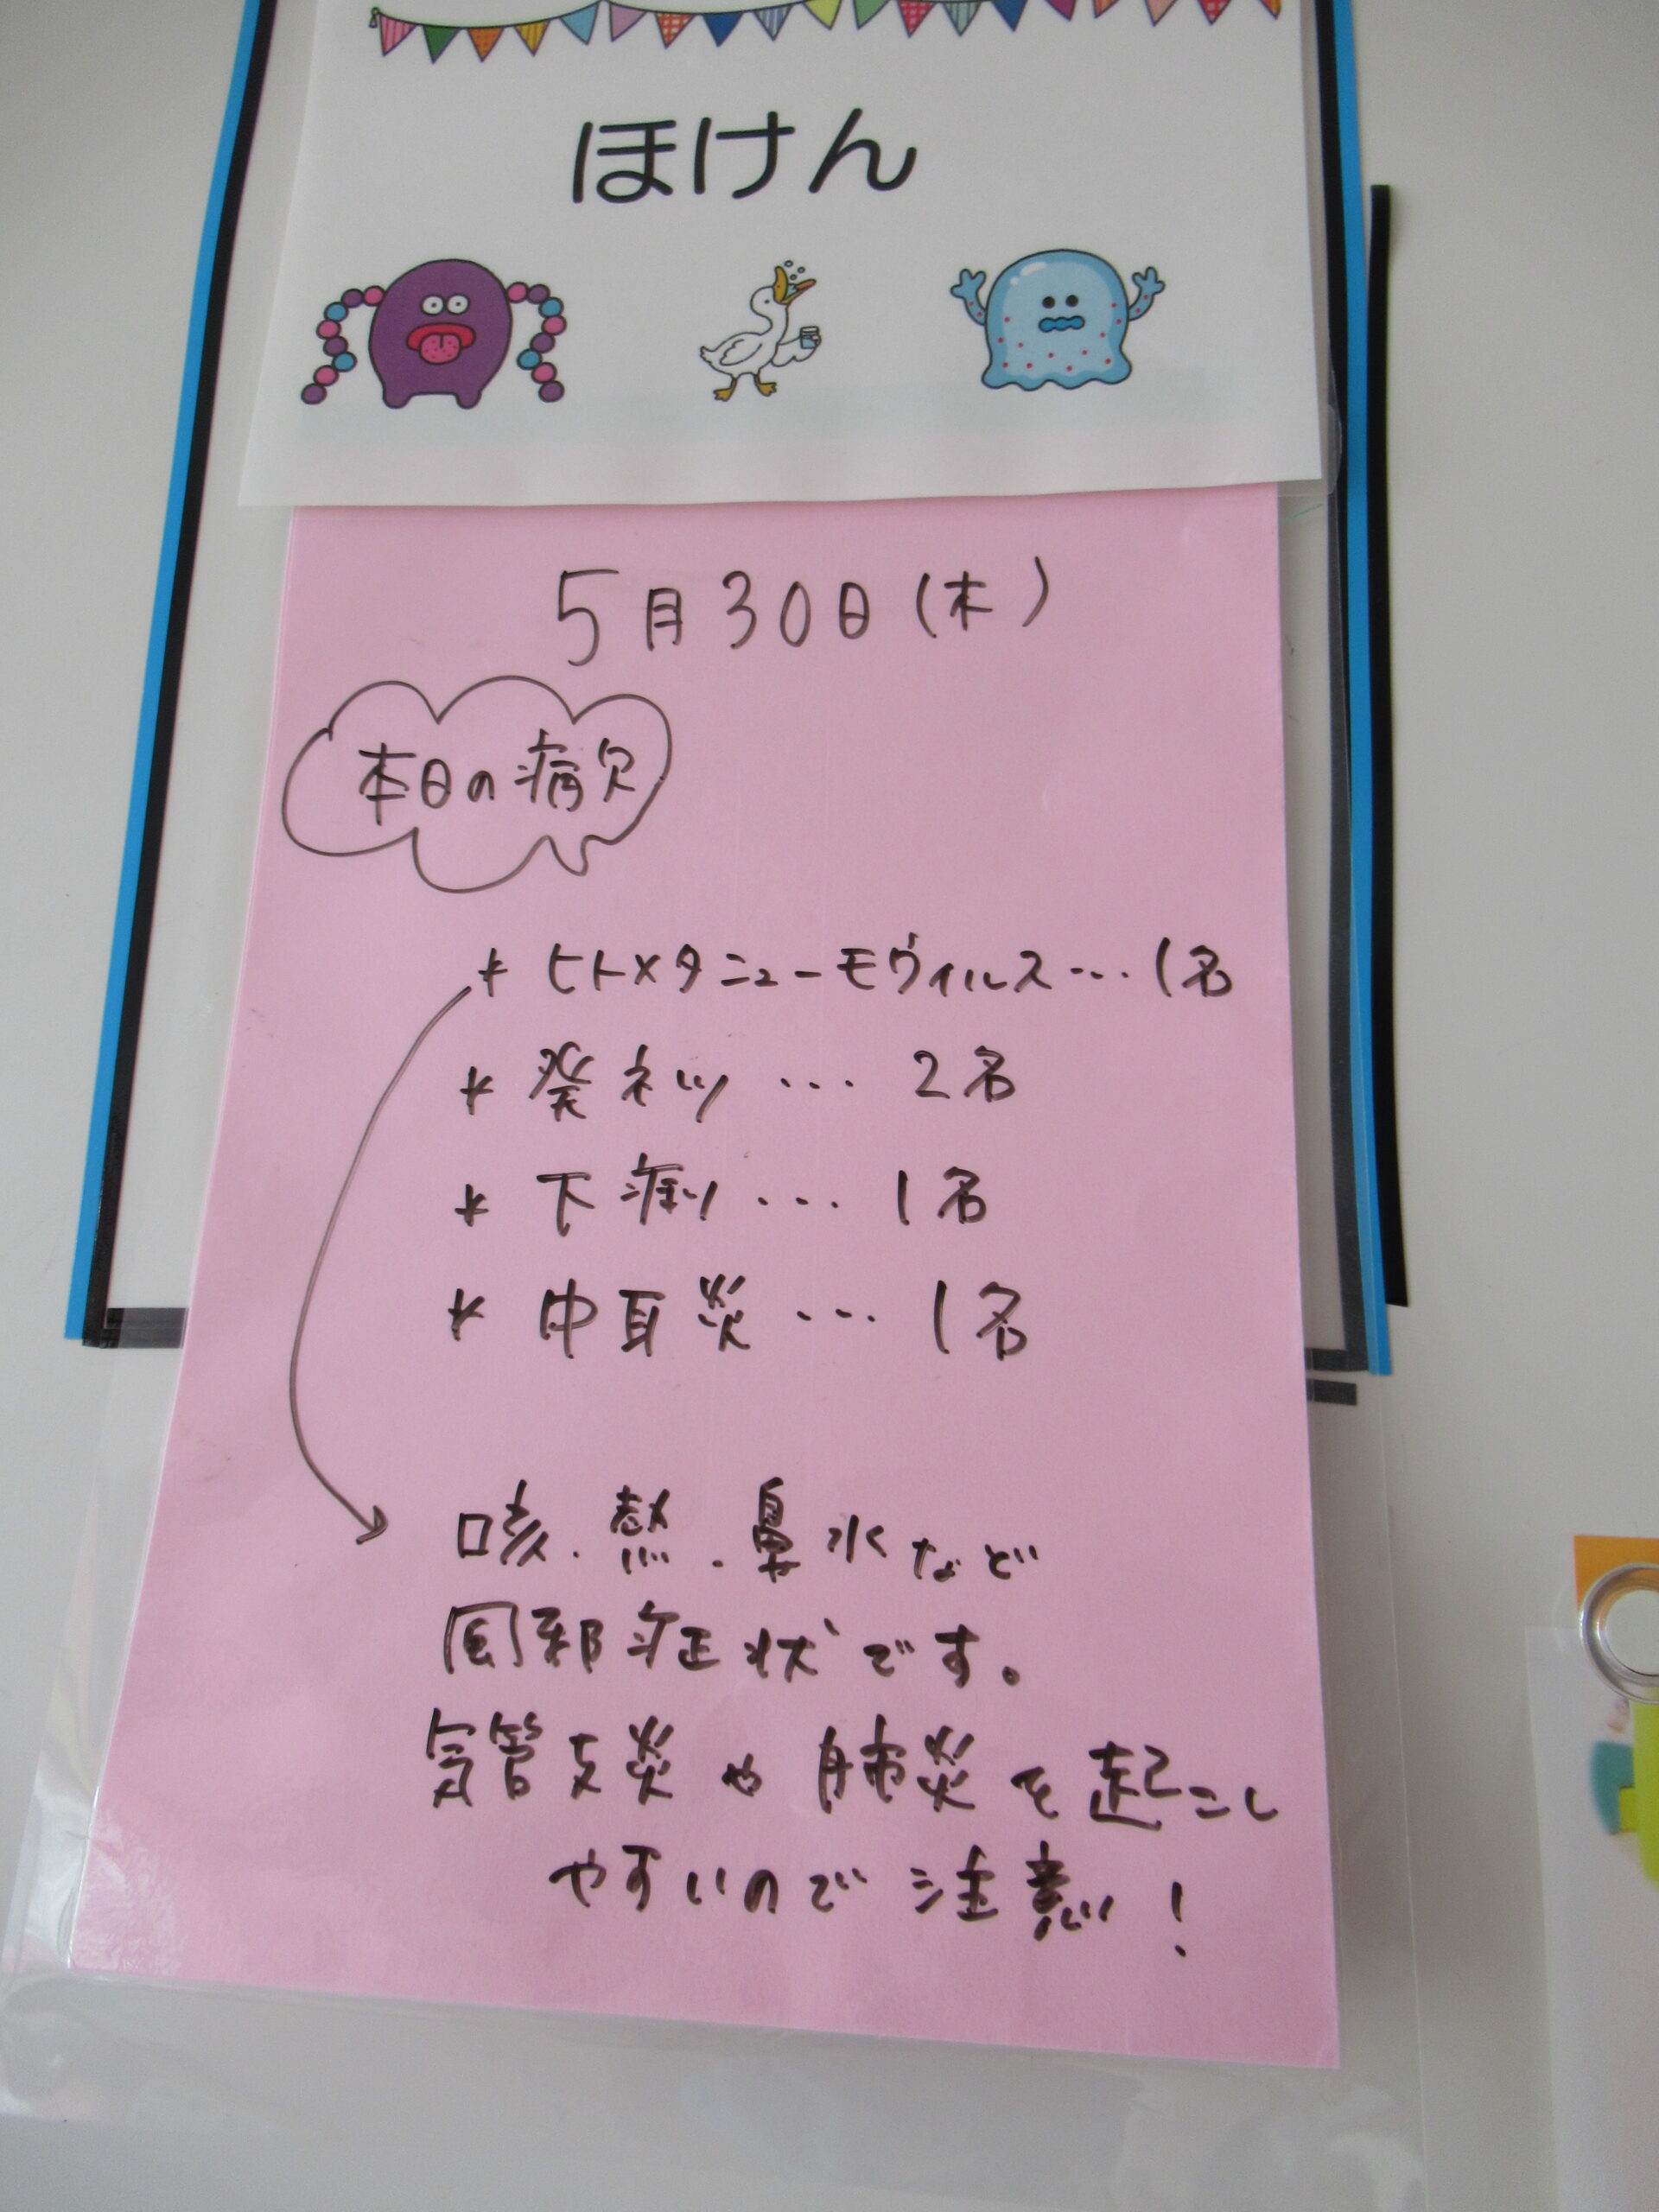 ほけん
5月30日(木)
本日の病欠
* ヒトメタニューモウィルス…1名
* 発ネツ … 2名
* 下痢 … 1名
* 中耳炎 … 1名
咳.熱.鼻水など
風邪症状です。
気管支炎や肺炎を起こし
やすいので注意!